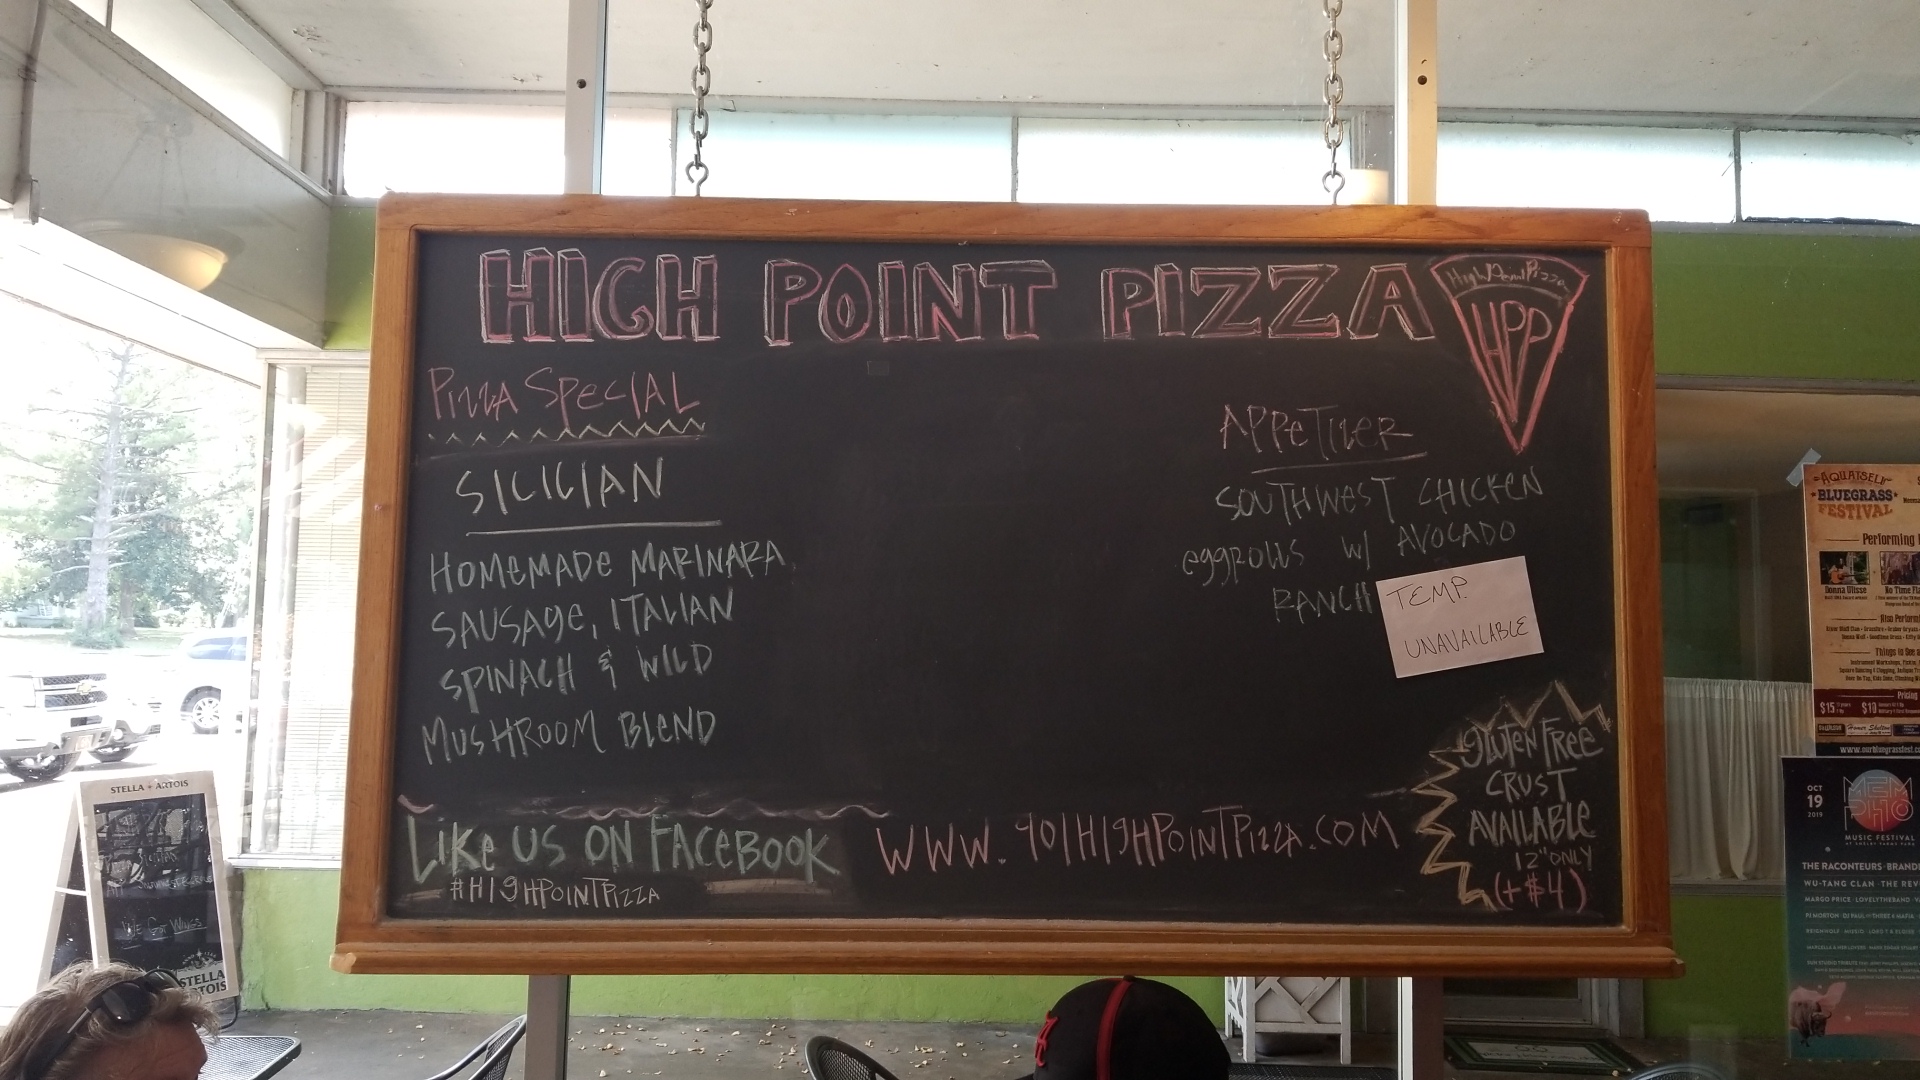 HIGH POINT PIZZA
High Point Pizza
HPP
Pizza Special
SICILIAN
HOMEMADE MARINARA,
SAUSAge, ITALIAN
SPINACH & WILD
MUSHROOM BLeND
APPeTIzeR
SOUTHWEST CHICKEN
eggRolls w/ AVOCADO
RANCH
TEMP.
UNAVAILABLE
gluten Free
CRUST
AVAILABLe
12" ONLY
(+$4)
Like US ON FACeBOOK
#HIgHPOINTPIZZA
WWW.901HIgHPOINTPIZZA.COM
STELLA ARTOIS
We Got Wings
STELLA
ARTOIS
BLUEGRASS
FESTIVAL
Performing
Donna Ulisse
No Time
Also
Things to See
Pricing
$15
$10
OCT
19
2019
MEM
PHO
MUSIC FESTIVAL
THE RACONTEURS
WU-TANG CLAN · THE
MARGO PRICE · LOVELYTHEBAND
PJ MORTON